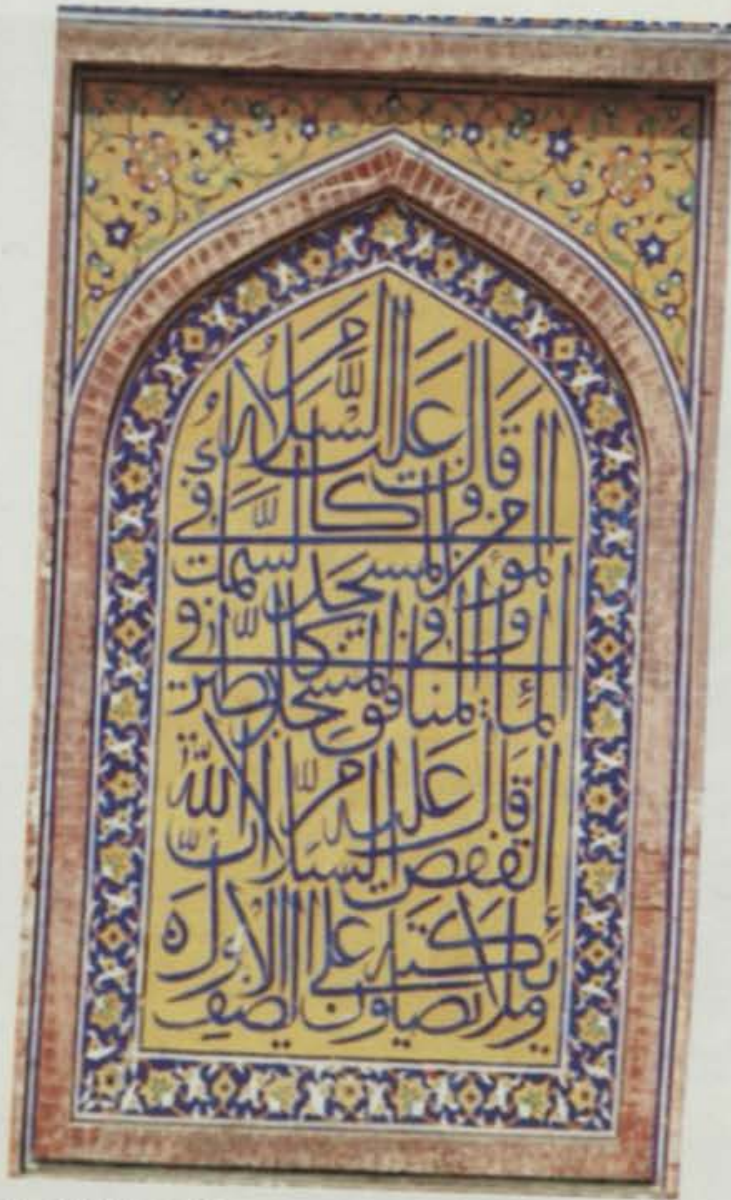 قال عليه السلام
المؤمن في المسجد كالسمك في
الماء والمنافق في المسجد كالطير في
القفص قال عليه السلام الا ان الله
وملائكته يصلون على الصف الاول